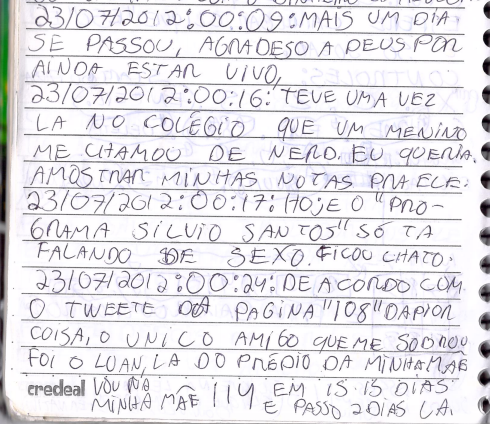 23/07/2012:00:09: MAIS UM DIA
SE PASSOU, AGRADESO A DEUS POR
AINDA ESTAR VIVO,
23/07/2012:00:16: TEVE UMA VEZ
LA NO COLÉGIO QUE UM MENINO
ME CHAMOU DE NERD. EU QUERIA
AMOSTRAR MINHAS NOTAS PRA ELE.
23/07/2012:00:17: HOJE O "PRO-
GRAMA SILVIO SANTOS" SÓ TA
FALANDO DE SEXO. FICOU CHATO.
23/07/2012:00:24: DE ACORDO COM
O TWEETE DA PAGINA "108" DA PIOR
COISA, O UNICO AMIGO QUE ME SOBROU
FOI O LUAN, LA DO PRÉDIO DA MINHA MÃE
credeal VOU NA IIII EM 15. 15 DIAS
MINHA MÃE E PASSO 2 DIAS LA.